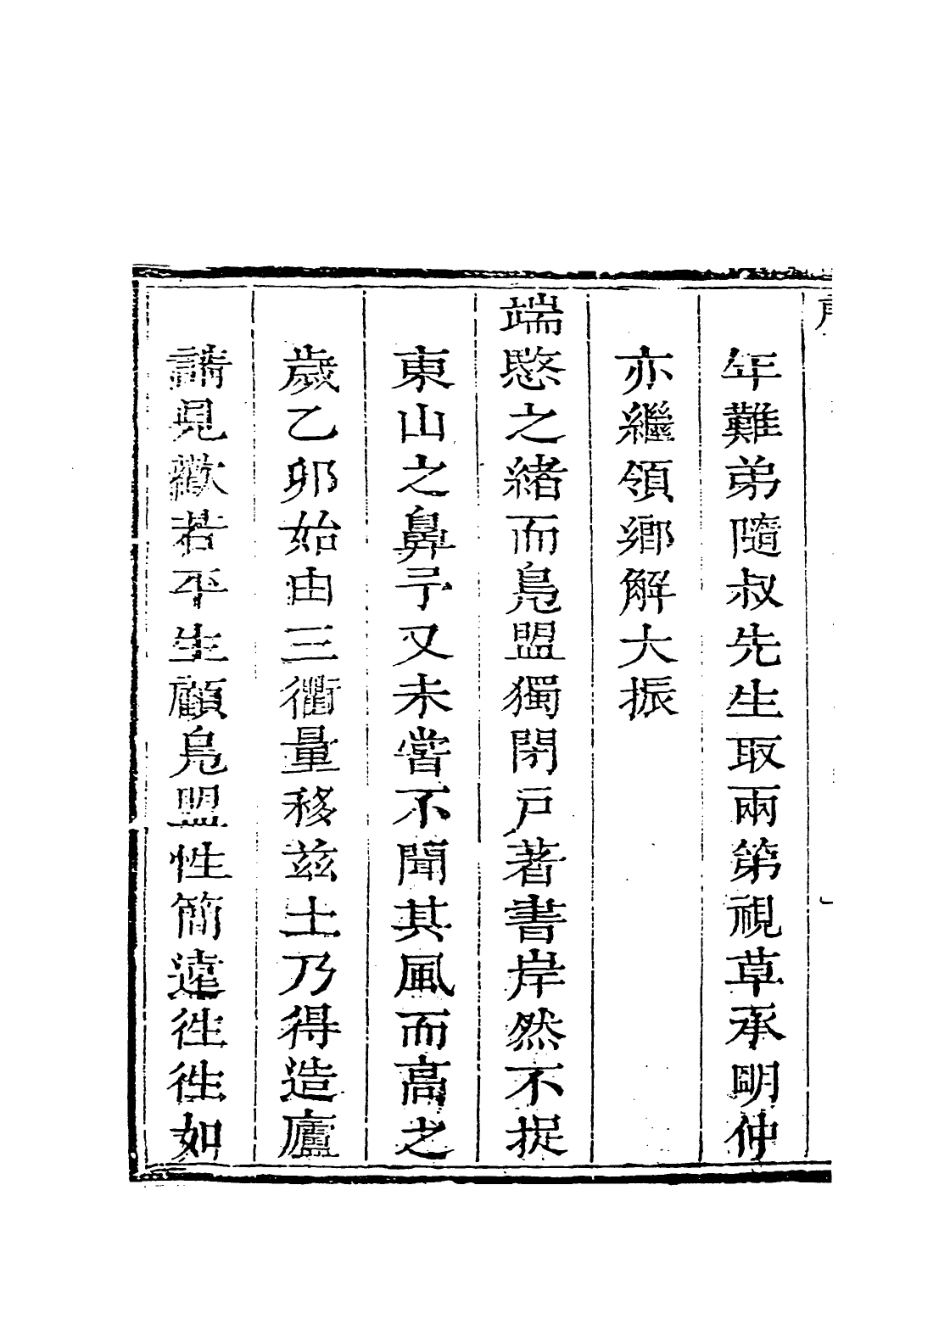 年難弟隨叔先生取兩第視草承明仲
亦繼領鄉解大振
端愍之緒而鳧盟獨閉戸著書岸然不捉
東山之鼻予又未嘗不聞其風而高之
歲乙卯始由三衢量移茲土乃得造廬
請見歡若平生顧鳧盟性簡遠徃徃如